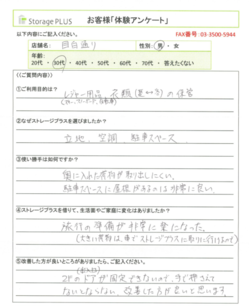 Storage PLUS
お客様「体験アンケート」
以下内容にご記入ください。
FAX番号 03-3500-5944
店舗名: 目白通り
性別: 男・女
年齢:
20代・30代・40代・50代・60代・70代・答えたくない
<ご質問内容>
①ご利用目的は?
レジャー用品、衣類(夏⇔冬)の保管
②なぜストレージプラスを選びましたか?
立地、空調、駐車スペース
③使い勝手は如何ですか?
奥に入れた荷物が取り出しにくい。
駐車スペースに屋根があるのは非常に良い。
④ストレージプラスを借りて、生活面やご家庭に変化はありましたか?
旅行の準備が非常に楽になった。
(大きい荷物は、車でストレージプラスに取りに行けるので)
⑤改善した方が良いところがありましたら、ご記入ください。
2Fのドアが固定できないので、すぐ押さえて
ないとならない。改善した方が良いと思います。